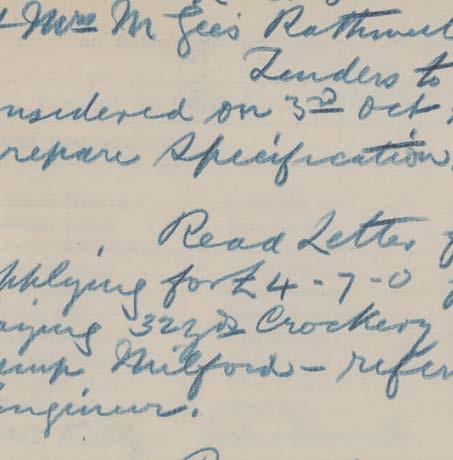 Mrs McGee's Rathmul
Tenders to
onsidered on 3rd Oct
repare Specification.
Read Letter f
pplying for £4-7-0 f
aying 32 yds Crockery
ump Milford - refer
Engineer.